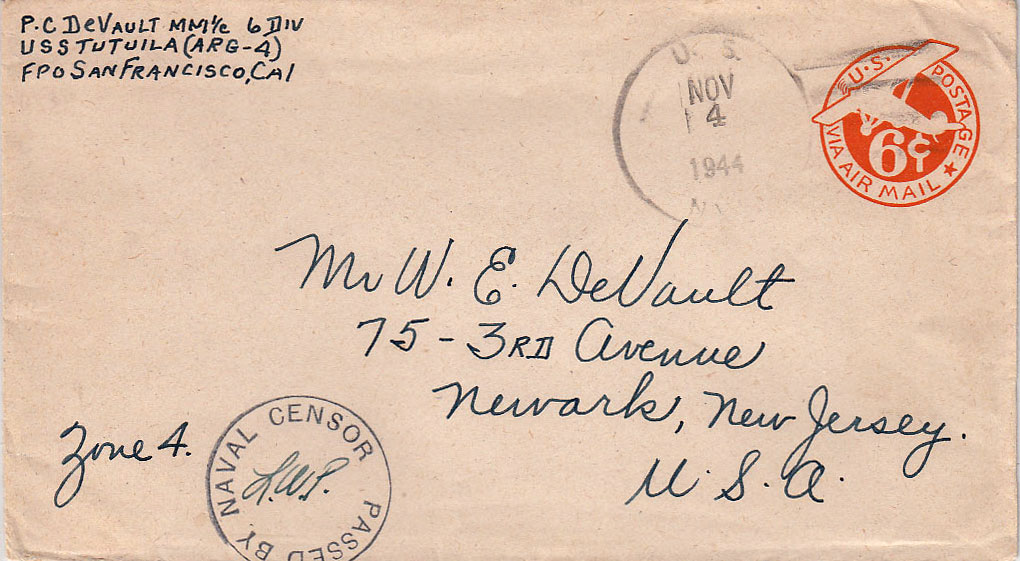 P.C DeVAULT MM1/c 6 DIV
USS TUTUILA (ARG-4)
FPO SAN FRANCISCO, CAL
U. S.
NOV
4
1944
U.S. POSTAGE
6¢
VIA AIR MAIL
Mr W. E. DeVault
75 - 3RD Avenue
Newark, New Jersey.
U. S. A.
Zone 4.
PASSED BY NAVAL CENSOR
L.W.P.